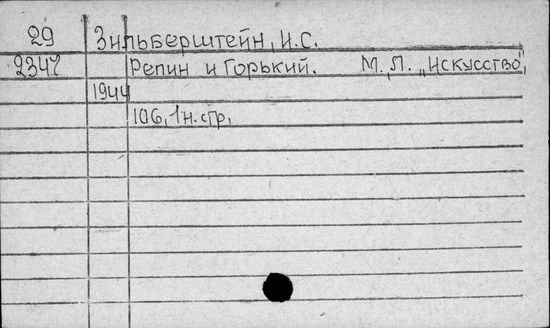 29 Зильберштейн, И.С.
2347 Репин и Горький. М., Л. „Искусство",
1944
106, 1 н. стр.